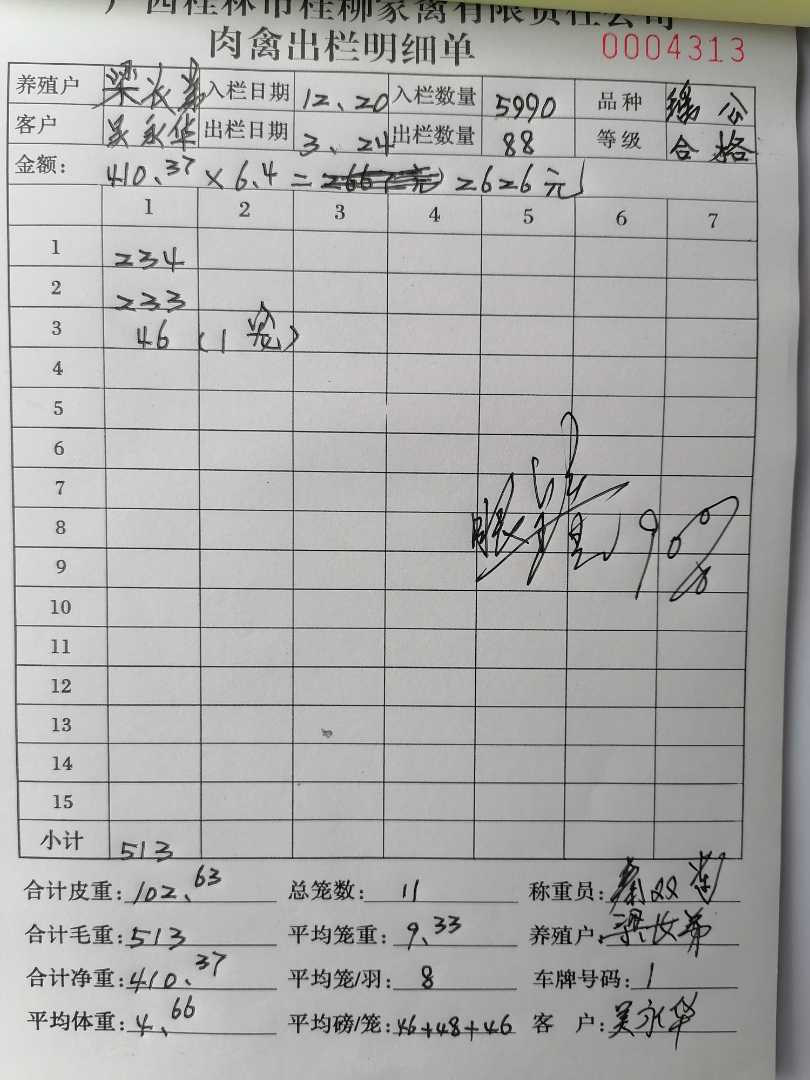 广西桂林市桂柳家禽有限责任公司
肉禽出栏明细单 0004313
养殖户 梁长弟 入栏日期 12、20 入栏数量 5990 品种 公
客户 吴永华 出栏日期 3、24 出栏数量 88 等级 合格
金额: 410.37 × 6.4 = 2626元
1 2 3 4 5 6 7
1 234
2 233
3 46 (1笼)
4
5
6
7
8 90%
9
10
11
12
13
14
15
小计 513
合计皮重: 102、63 总笼数: 11 称重员: 秦双
合计毛重: 513 平均笼重: 9、33 养殖户: 梁长弟
合计净重: 410、37 平均笼/羽: 8 车牌号码: 1
平均体重: 4、66 平均磅/笼: 46+48+46 客户: 吴永华